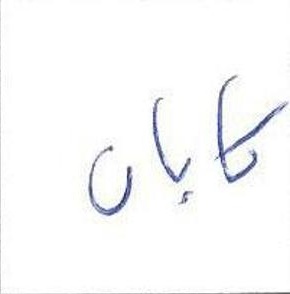 تابان